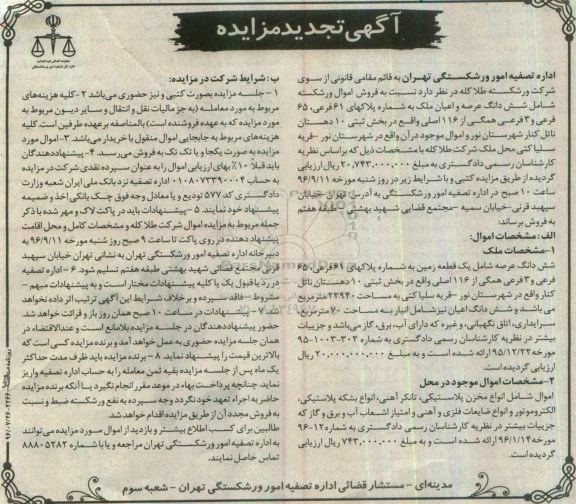 آگهی تجدید مزایده
اداره تصفیه امور ورشکستگی تهران به قائم مقامی قانونی از سوی
شرکت ورشکسته طلا کله در نظر دارد نسبت به فروش اموال ورشکسته
شامل شش دانگ عرصه و اعیان ملک به شماره پلاکهای ۶۱ فرعی، ۶۵
فرعی و ۳ فرعی همگی از ۱۱۶ اصلی واقع در بخش ثبتی ۱۰ دهستان
ناتل کنار شهرستان نور و اموال موجود در آن واقع در شهرستان نور – قریه
سلیا کتی محل ملک شرکت طلا کله با مشخصات ذیل که براساس نظریه
کارشناسان رسمی دادگستری به مبلغ ۲۰,۷۴۳,۰۰۰,۰۰۰ ریال ارزیابی
گردیده از طریق مزایده کتبی و با شرایط زیر در روز شنبه مورخه ۹۶/۹/۱۱
ساعت ۱۰ صبح در اداره تصفیه امور ورشکستگی به آدرس تهران خیابان
سپهبد قرنی–خیابان سمیه–مجتمع قضایی شهید بهشتی – طبقه هفتم
به فروش برساند:
الف: مشخصات اموال:
۱–مشخصات ملک
شش دانگ عرصه شامل یک قطعه زمین به شماره پلاکهای ۶۱ فرعی، ۶۵
فرعی و ۳ فرعی همگی از ۱۱۶ اصلی واقع در بخش ثبتی ۱۰ دهستان ناتل
کنار واقع در شهرستان نور – قریه سلیا کتی به مساحت ۲۲۹۴۰ مترمربع
می باشد و شش دانگ اعیان نیز شامل انبار به مساحت ۷۰ مترمربع
سرایداری، اتاق نگهبانی، و غیره که دارای آب، برق، گاز می‌باشد و جزییات
بیشتر در نظریه کارشناسان رسمی دادگستری به شماره ۳۰۲–۱۰۰۳–۹۵
مورخه ۹۵/۱۲/۲۲ ارائه شده است و به مبلغ ۲۰,۰۰۰,۰۰۰,۰۰۰ ریال
ارزیابی گردیده است.
۲–مشخصات اموال موجود در محل
اموال شامل انواع مخزن پلاستیکی، تانکر آهنی، انواع بشکه پلاستیکی،
الکتروموتور و انواع ضایعات فلزی و آهنی و امتیاز انشعاب آب و برق و گاز که
جزییات بیشتر در نظریه کارشناسان رسمی دادگستری به شماره ۱۲–۹۶
مورخه ۹۶/۱/۱۴ ارائه شده است و به مبلغ ۷۴۳,۰۰۰,۰۰۰ ریال ارزیابی
گردیده است.
ب: شرایط شرکت در مزایده:
۱ – جلسه مزایده بصورت کتبی و نیز حضوری می‌باشد ۲–کلیه هزینه‌های
مربوط به مورد معامله (به جز مالیات نقل و انتقال و سایر دیون مربوط به
مورد مزایده که به عهده فروشنده است) بالمناصفه برعهده طرفین است. کلیه
هزینه‌های مربوط به جابجایی اموال منقول با خریدار می‌باشد. ۳–اموال مورد
مزایده به صورت یکجا و یا تک تک به فروش می‌رسد. ۴– پیشنهاددهندگان
باید قبلا ۱۰٪ بهای ارزیابی اموال را به عنوان سپرده نقدی شرکت در مزایده
به حساب اداره تصفیه نزد بانک ملی ایران شعبه وزارت
دادگستری کد ۵۷۷ تودیع و یا معادل وجه فوق چک بانکی اخذ و ضمیمه
پیشنهاد خود نمایند. ۵ – پیشنهادات باید در پاکت لاک و مهر شده با ذکر
جمله مربوط به مزایده اموال شرکت طلا کله و مشخصات کامل و محل اقامت
پیشنهاد دهنده در روی پاکت تا ساعت ۹ صبح روز شنبه مورخه ۹۶/۹/۱۱ به
دبیرخانه اداره تصفیه امور ورشکستگی تهران به نشانی تهران خیابان سپهبد
قرنی مجتمع قضائی شهید بهشتی طبقه هفتم تسلیم شود. ۶–اداره تصفیه
در رد یا قبول یک یا کلیه پیشنهادات مختار است و به پیشنهادات مبهم –
مشروط – فاقد سپرده و برخلاف شرایط این آگهی ترتیب اثر داده نخواهد
شد ۷– پیشنهادات در ساعت ۱۰ صبح همان روز باز و قرائت خواهد شد.
حضور پیشنهاددهندگان در جلسه مزایده بلامانع است و عنداالاقتضاء در
همان جلسه مزایده حضوری به عمل خواهد آمد و برنده مزایده کسی است که
بالاترین قیمت را پیشنهاد نماید. ۸ – برنده مزایده باید ظرف مدت حداکثر
یک ماه پس از جلسه مزایده بقیه ثمن معامله را به حساب اداره تصفیه واریز
نماید. چنانچه پرداخت بهاء در موعد مقرر انجام نگیرد یا آنکه برنده مزایده
حاضر به اجراء تعهد خود نگردد وجه سپرده به نفع ورشکسته ضبط و نسبت
به فروش مجدد آن از طریق مزایده اقدام خواهد شد.
طالبین برای کسب اطلاع بیشتر و بازدید از اموال مورد مزایده می‌توانند
به اداره تصفیه امور ورشکستگی تهران مراجعه و یا با شماره ۸۸۸۰۵۲۸۲
تماس حاصل نمایند.
مدینه‌ای – مستشار قضائی اداره تصفیه امور ورشکستگی تهران – شعبه سوم